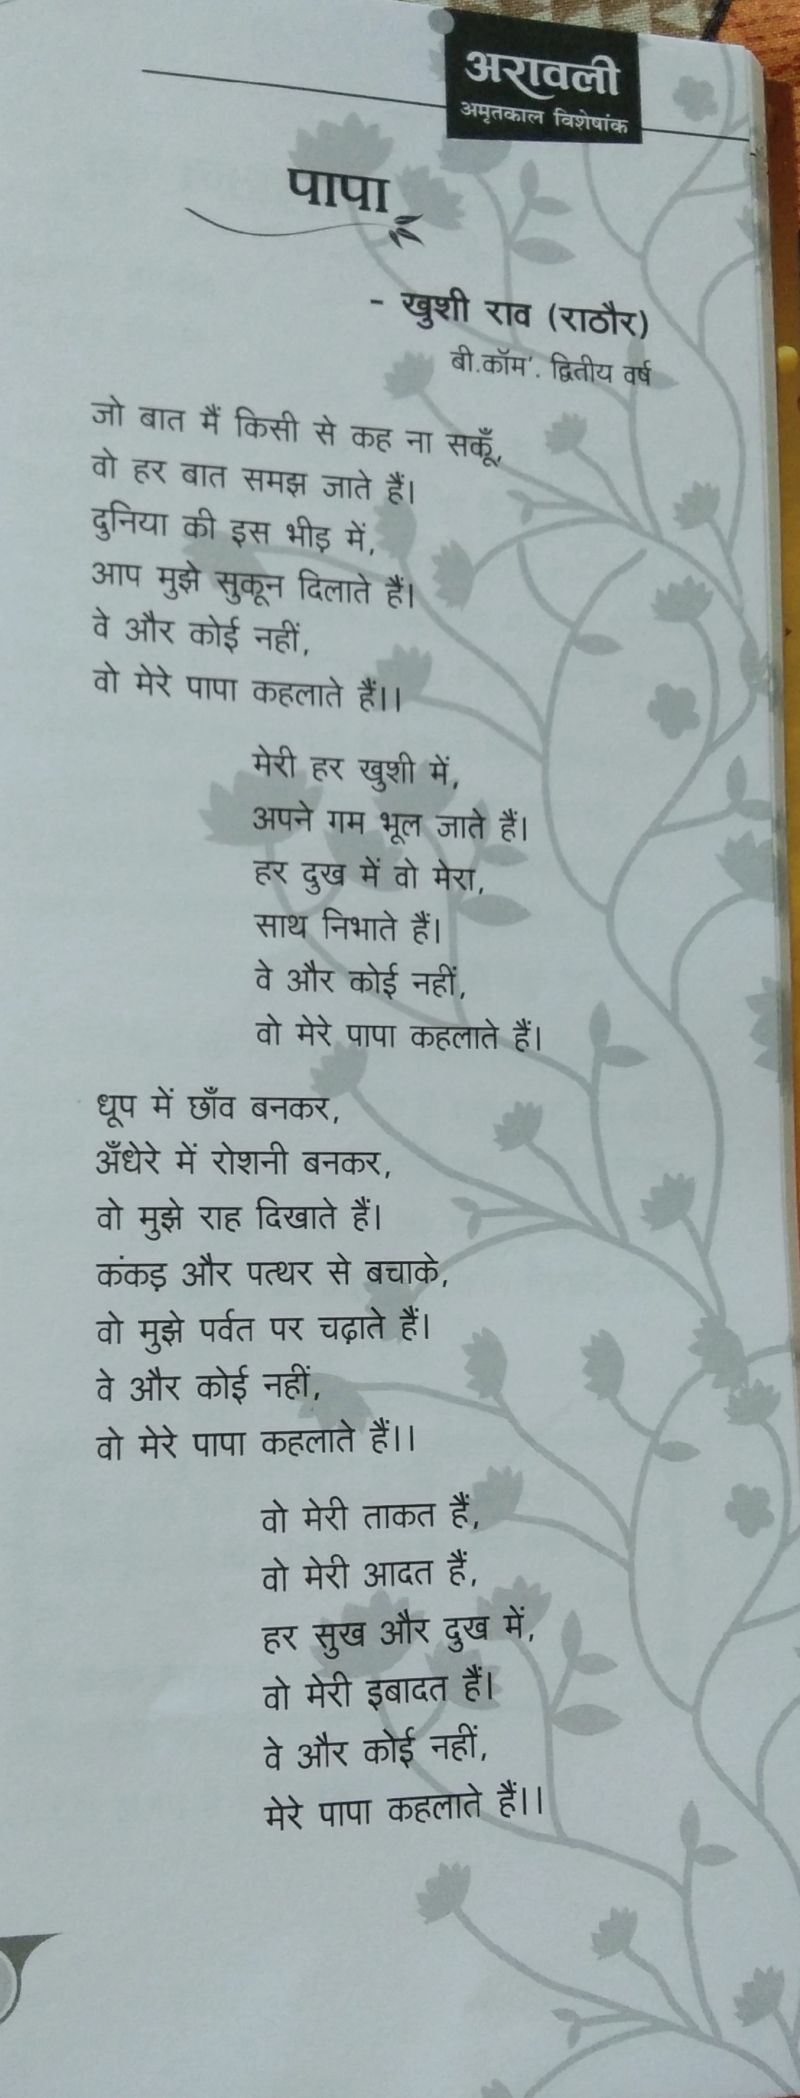 अरावली
अमृतकाल विशेषांक
पापा
- खुशी राव (राठौर)
बी.कॉम'. द्वितीय वर्ष
जो बात मैं किसी से कह ना सकूँ,
वो हर बात समझ जाते हैं।
दुनिया की इस भीड़ में,
आप मुझे सुकून दिलाते हैं।
वे और कोई नहीं,
वो मेरे पापा कहलाते हैं।।
मेरी हर खुशी में,
अपने गम भूल जाते हैं।
हर दुख में वो मेरा,
साथ निभाते हैं।
वे और कोई नहीं,
वो मेरे पापा कहलाते हैं।
धूप में छाँव बनकर,
अँधेरे में रोशनी बनकर,
वो मुझे राह दिखाते हैं।
कंकड़ और पत्थर से बचाके,
वो मुझे पर्वत पर चढ़ाते हैं।
वे और कोई नहीं,
वो मेरे पापा कहलाते हैं।।
वो मेरी ताकत हैं,
वो मेरी आदत हैं,
हर सुख और दुख में,
वो मेरी इबादत हैं।
वे और कोई नहीं,
मेरे पापा कहलाते हैं।।